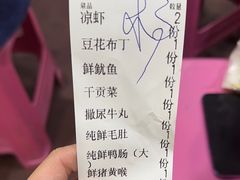 菜品 数量
凉虾 2份
豆花布丁 1份
鲜鱿鱼 1份
干贡菜 1份
撒尿牛丸 1份
纯鲜毛肚 1份
纯鲜鸭肠（大） 1份
鲜猪黄喉 1份